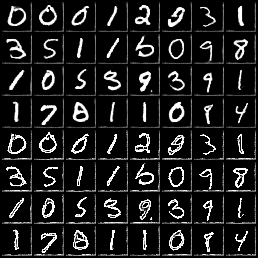 0 0 0 1 2 9 3 1
3 5 1 1 5 0 9 8
1 0 5 3 9 3 9 1
1 7 8 1 1 0 9 4
0 0 0 1 2 9 3 1
3 5 1 1 5 0 9 8
1 0 5 3 9 3 9 1
1 7 8 1 1 0 9 4